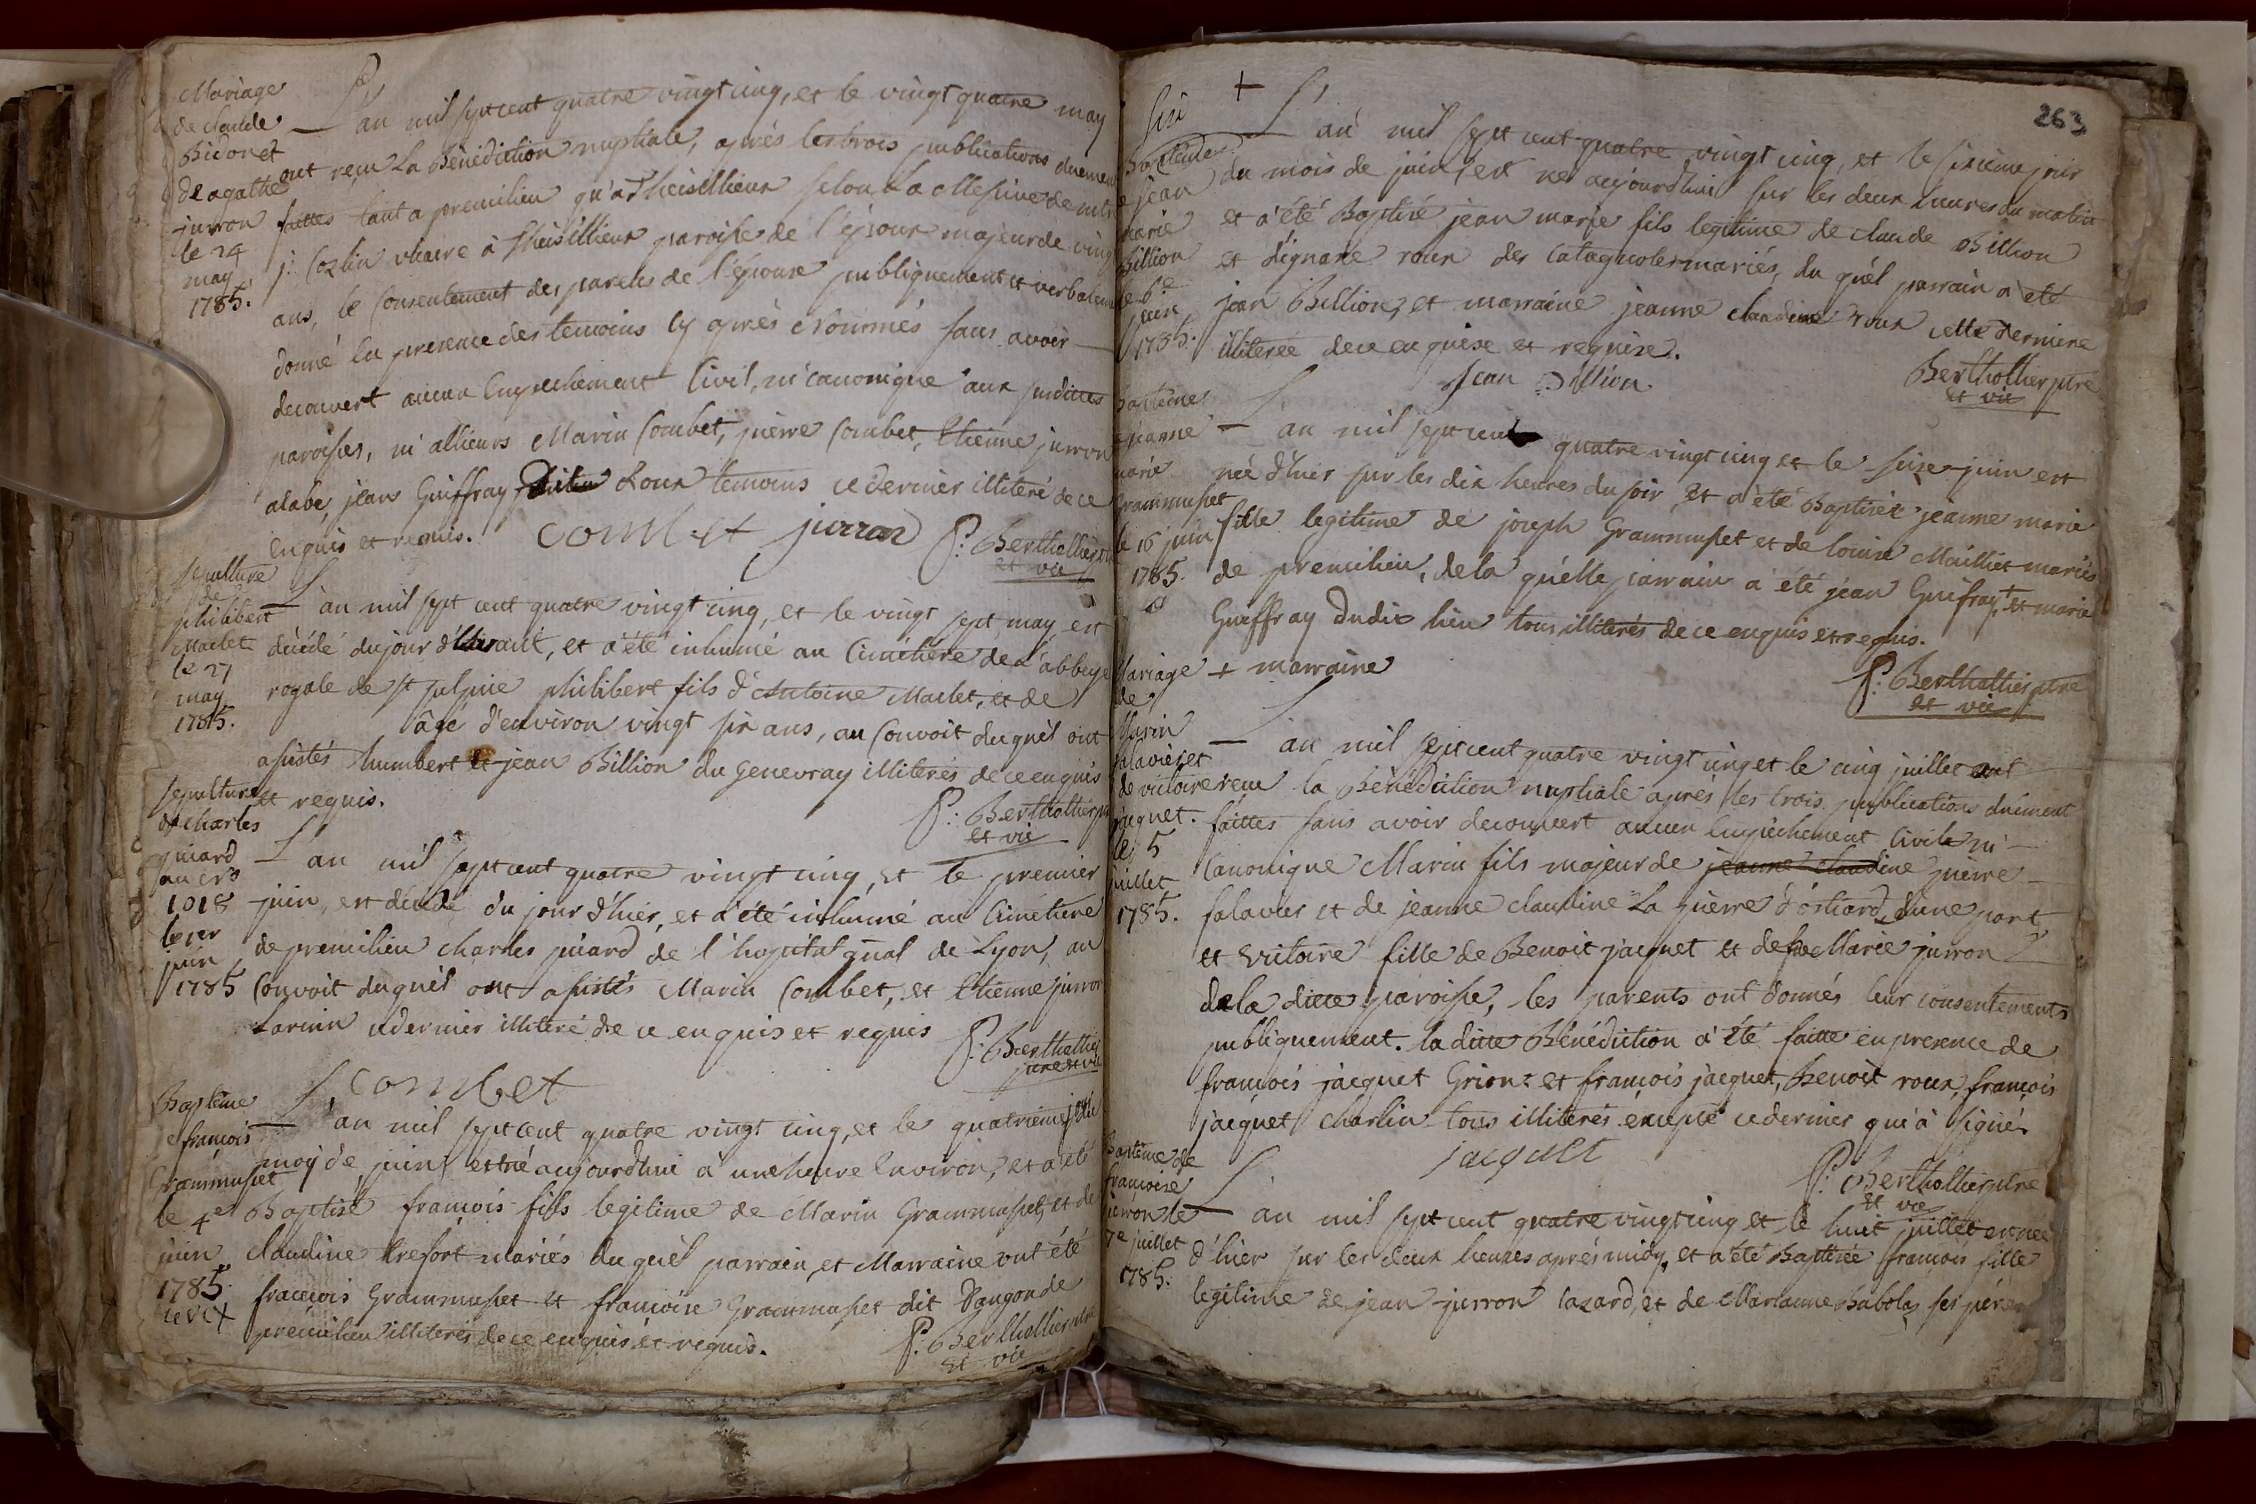 Mariage
de claude
Bidon et
de agathe
jurron
le 24
may
1785.
L'an mil sept cent quatre vingt cinq, et le vingt quatre may
ont reçu La Bénédiction nuptiale, après les trois publications duement
faittes tant a premilieu qu'a Theisillieux selon La
j. Cozlin vicaire à Theisillieux paroisse de l'époux majeur de vingt
ans, le Consentement des parents de l'épouse publiquement et verbalement
donné En presence des temoins Cy après nommés sans avoir
decouvert aucun Empechement Civil, ni canonique aux susdittes
paroisses, ni allieurs Marin Combet, pierre Combet, Etienne jurron
alabe, jean Guiffray Roux temoins ce dernier illiteré de ce
Enquis et requis.
combet jurron P. Berthollier
et vic
sepulture
de
philibert
Maclet
le 27
may
1785.
L'an mil sept cent quatre vingt cinq, et le vingt sept may est
décédé du jour d'avant, et a été inhumé au Cimétière de L'abbeye
royale de st sulpice philibert fils d'Antoine Maclet, et de
âgé d'environ vingt six ans, au Convoit duquél ont
assistés humbert et jean Billion du Genevray illiterés de ce enquis
et requis.
P. Berthollier
et vic
sepulture
de charles
puiard
au Crs
1018
le 1er
juin
1785
L'an mil sept cent quatre vingt cinq, et le premier
juin, est décédé du jour d'hier, et a été inhumé au Cimétiere
de premilieu charles puiard de l'hopital gñal de Lyon, au
Convoit duquél ont assistés Marin Combet, et Etienne jurron
Larnin ce dernier illiteré de ce enquis et requis
P. Berthollier
ptre et vic
combet
Baptême
françois
Grammusset
le 4e
juin
1785.
L'an mil sept cent quatre vingt cinq, et le quatrieme jour du
moy de juin, est né aujourdhui à une heure Environ, et a été
Baptisé françois fils legitime de Marin Grammusset, et de
claudine trefort mariés du quél parrain, et Marraine ont été
françois Grammusset et françoise Grammusset dit Dangon de
premilieu illiterés de ce enquis et requis.
P. Berthollier ptre
et vic
263
+
Baptême
jean
marie
Billion
le 6e
juin
1785.
L'an mil sept cent quatre vingt cinq, et le sixième jour
du mois de juin, est né aujourdhui sur les deux heures du matin
et a été Baptisé jean marie fils legitime de claude Billion
et dignane roux des Catagnoles mariés, du quél parrain a été
jean Billion, et marraine jeanne claudine roux cette derniere
illiterée de ce enquise et requise.
Jean Billion Berthollier ptre
et vic
Baptême
jeanne
marie
Grammusset
le 16 juin
1785.
L'an mil sept cent quatre vingt cinq et le seize juin est
née d'hier sur les dix heures du soir, et a été Baptisée jeanne marie
fille legitime de joseph Grammusset et de louise Mailliet mariés
de premilieu, de la quélle parrain a été jean Guiffray, + et marie
Guiffray dudit lieu tous illiterés de ce enquis et requis.
+ marraine
P. Berthollier ptre
et vic
Mariage
de
Marin
falavier et
de victoire
jacquet.
le 5
juillet
1785.
L'an mil sept cent quatre vingt cinq et le cinq juillet ont
reçu la Bénédiction nuptiale après les trois publications duement
faittes sans avoir decouvert aucun Empêchement Civile ni
Canonique Marin fils majeur de jeanne claudine pierre
falavier et de jeanne claudine La pierre d'ostiard d'une part
et victoire fille de Benoit jacquet et de feue Marie jurron
de la ditte paroisse, les parents ont donnés leur consentements
publiquement. la ditte Bénédiction a été faitte en presence de
françois jacquet Grion et françois jacquet, Benoit roux, françois
jacquet charlin tous illiterés éxcepté ce dernier qui à signé.
jacquet
P. Berthollier ptre
et vic
Baptême de
françoise
jurron le
7e juillet
1785.
L'an mil sept cent quatre vingt cinq et le huit juillet est née
d'hier sur les deux heures après midy, et a été Baptisée françois fille
legitime de jean jurron Cazard, et de Marianne Babolaz ses pére